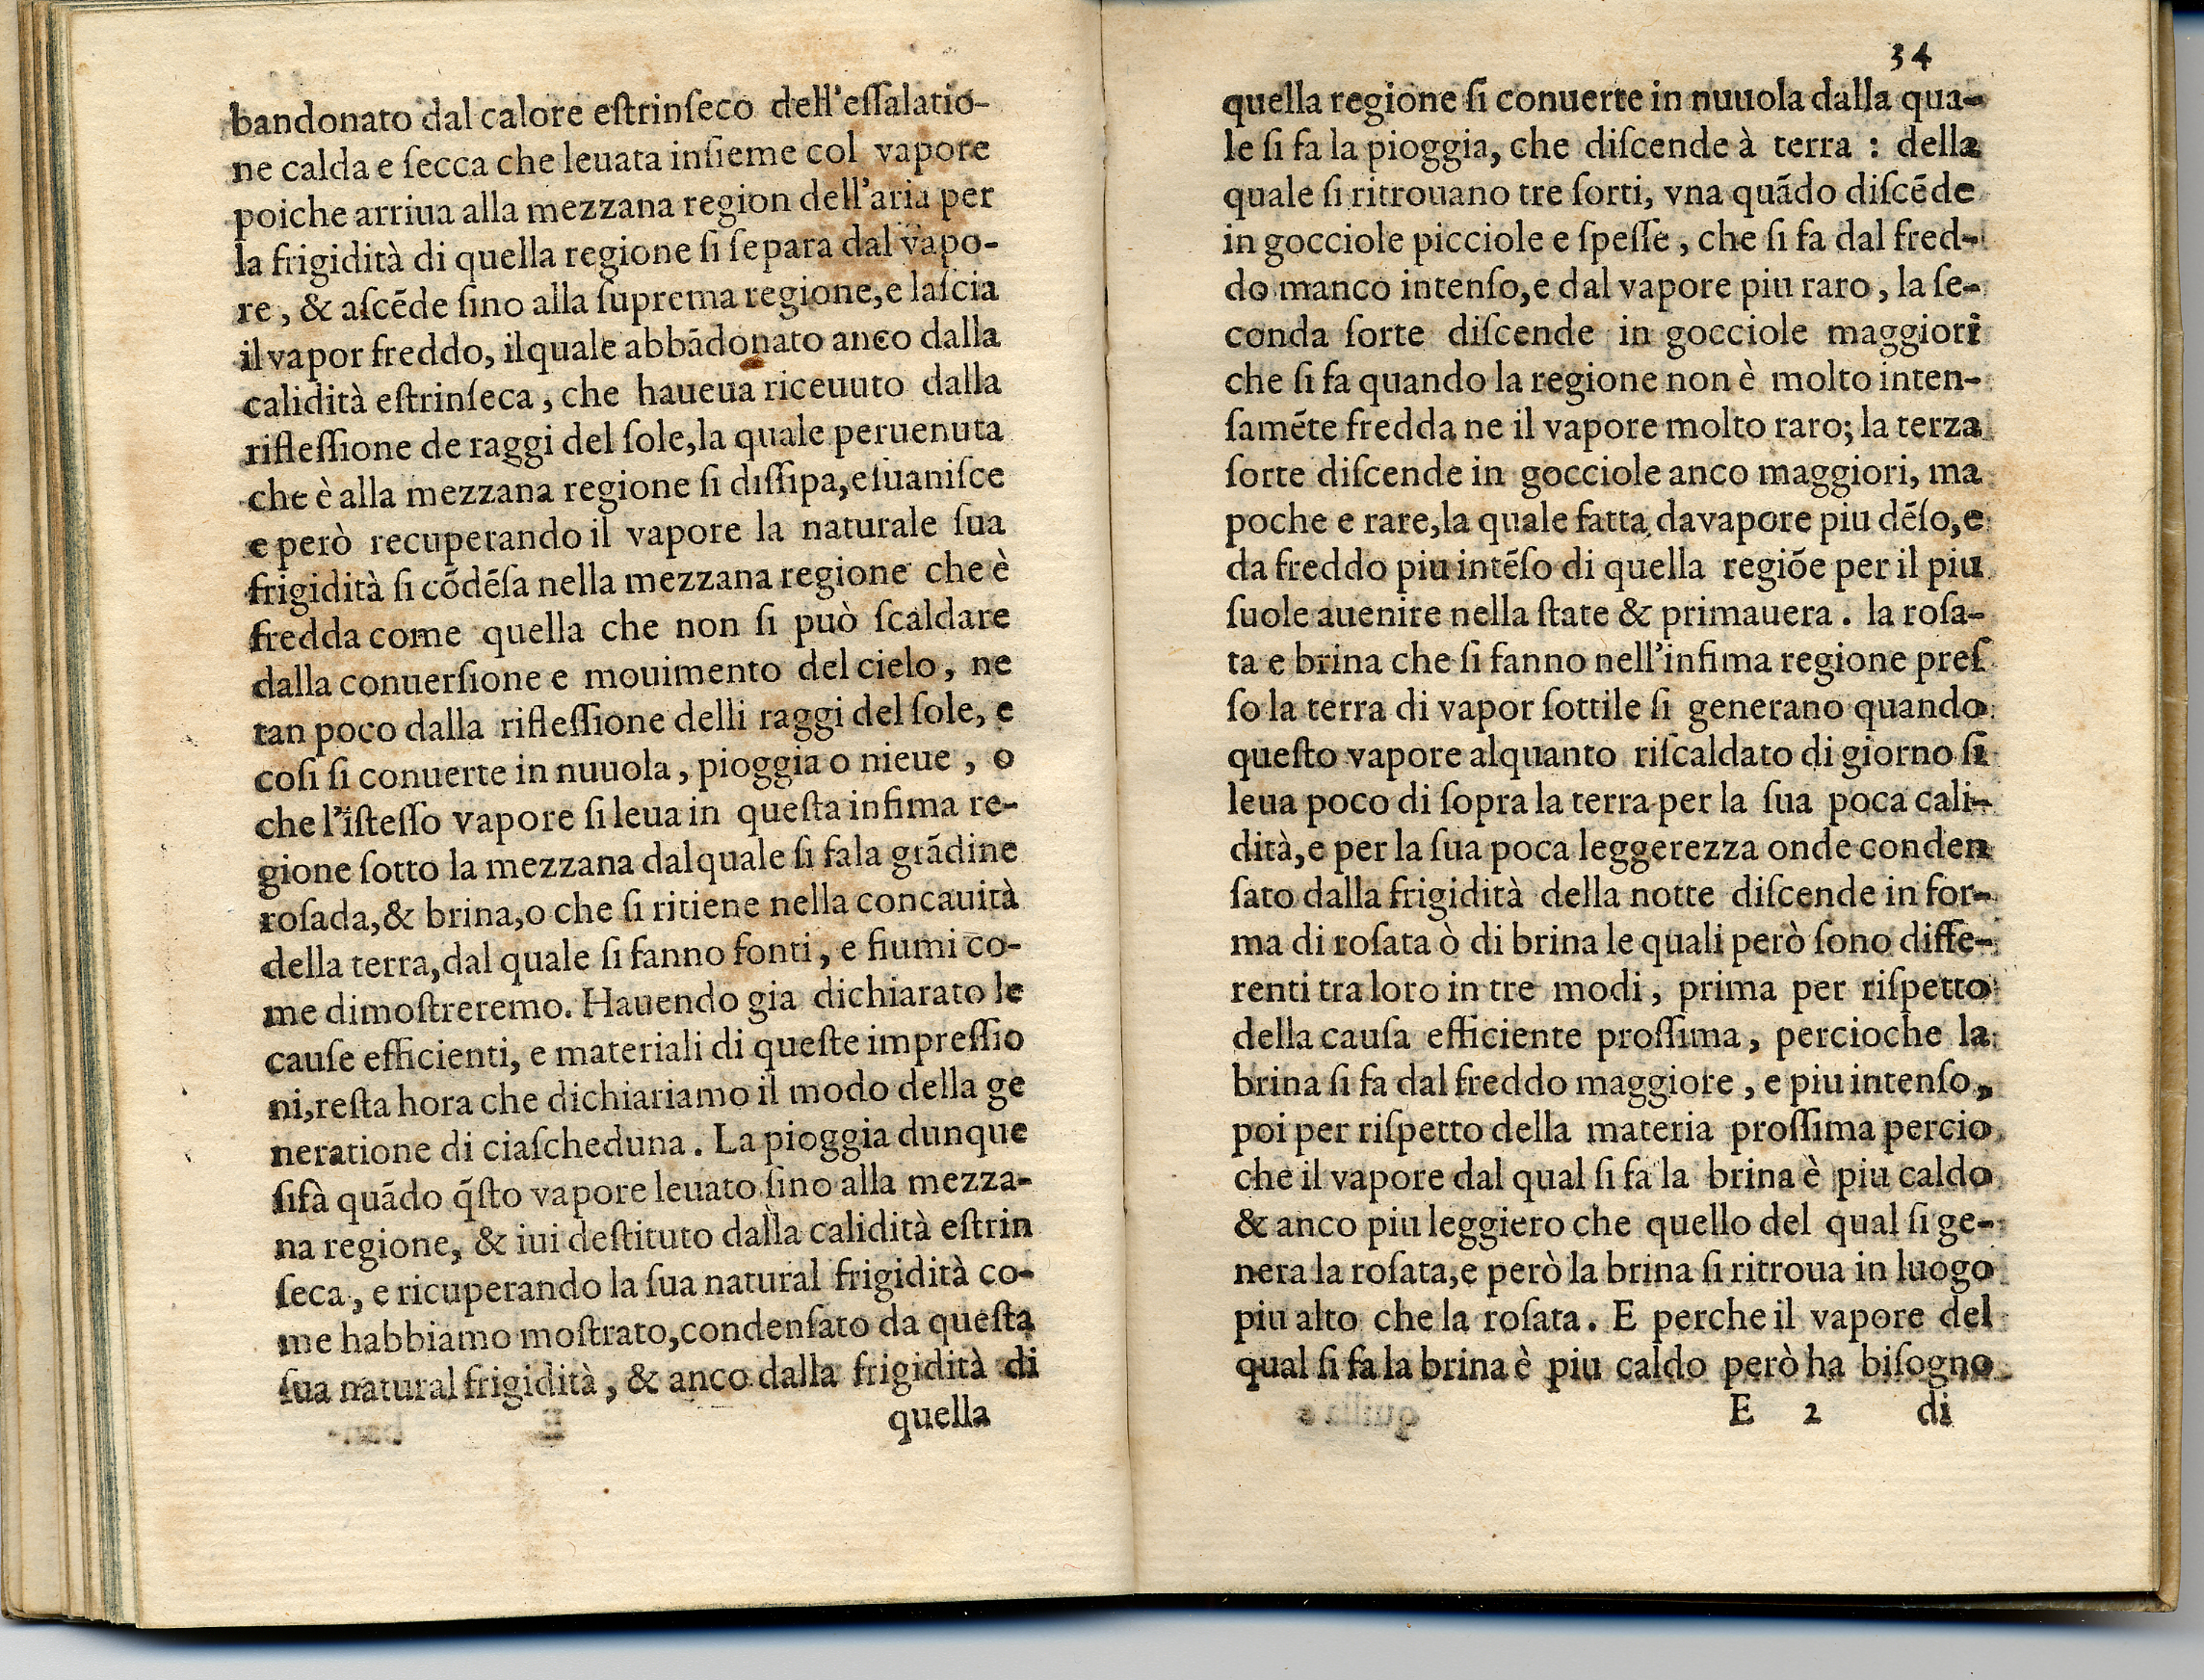 bandonato dal calore eſtrinſeco dell'eſſalatio-
ne calda e ſecca che leuata inſieme col vapore
poiche arriua alla mezzana region dell'aria per
la frigidità di quella regione ſi ſepara dal vapo-
re, & aſcēde ſino alla ſuprema regione, e laſcia
il vapor freddo, ilquale abbādonato anco dalla
calidità eſtrinſeca, che haueua riceuuto dalla
rifleſſione de raggi del ſole, la quale peruenuta
che è alla mezzana regione ſi diſſipa, e ſuaniſce
e però recuperando il vapore la naturale ſua
frigidità ſi cōdēſa nella mezzana regione che è
fredda come quella che non ſi può ſcaldare
dalla conuerſione e mouimento del cielo, ne
tan poco dalla rifleſſione delli raggi del ſole, e
coſi ſi conuerte in nuuola, pioggia o nieue, o
che l'iſteſſo vapore ſi leua in queſta infima re-
gione ſotto la mezzana dalquale ſi fala grādine
roſada, & brina, o che ſi ritiene nella concauità
della terra, dal quale ſi fanno fonti, e fiumi co-
me dimoſtreremo. Hauendo gia dichiarato le
cauſe efficienti, e materiali di queſte impreſſio
ni, reſta hora che dichiariamo il modo della ge
neratione di ciaſcheduna. La pioggia dunque
ſifà quādo q̄ſto vapore leuato ſino alla mezza-
na regione, & iui deſtituto dalla calidità eſtrin
ſeca, e ricuperando la ſua natural frigidità co-
me habbiamo moſtrato, condenſato da queſta
ſua natural frigidità, & anco dalla frigidità di
quella
34
quella regione ſi conuerte in nuuola dalla qua-
le ſi fa la pioggia, che diſcende à terra : della
quale ſi ritrouano tre ſorti, vna quādo diſcēde
in gocciole picciole e ſpeſſe, che ſi fa dal fred-
do manco intenſo, e dal vapore piu raro, la ſe-
conda ſorte diſcende in gocciole maggiori
che ſi fa quando la regione non è molto inten-
ſamēte fredda ne il vapore molto raro; la terza
ſorte diſcende in gocciole anco maggiori, ma
poche e rare, la quale fatta davapore piu dēſo, e
da freddo piu intēſo di quella regiōe per il piu
ſuole auenire nella ſtate & primauera. la roſa-
ta e brina che ſi fanno nell'infima regione preſ
ſo la terra di vapor ſottile ſi generano quando
queſto vapore alquanto riſcaldato di giorno ſi
leua poco di ſopra la terra per la ſua poca cali-
dità, e per la ſua poca leggerezza onde conden
ſato dalla frigidità della notte diſcende in for-
ma di roſata ò di brina le quali però ſono diffe-
renti tra loro in tre modi, prima per riſpetto
della cauſa efficiente proſſima, percioche la
brina ſi fa dal freddo maggiore, e piu intenſo,
poi per riſpetto della materia proſſima percio
che il vapore dal qual ſi fa la brina è piu caldo
& anco piu leggiero che quello del qual ſi ge-
nera la roſata, e però la brina ſi ritroua in luogo
piu alto che la roſata. E perche il vapore del
qual ſi fa la brina è piu caldo però ha biſogno
E 2 di